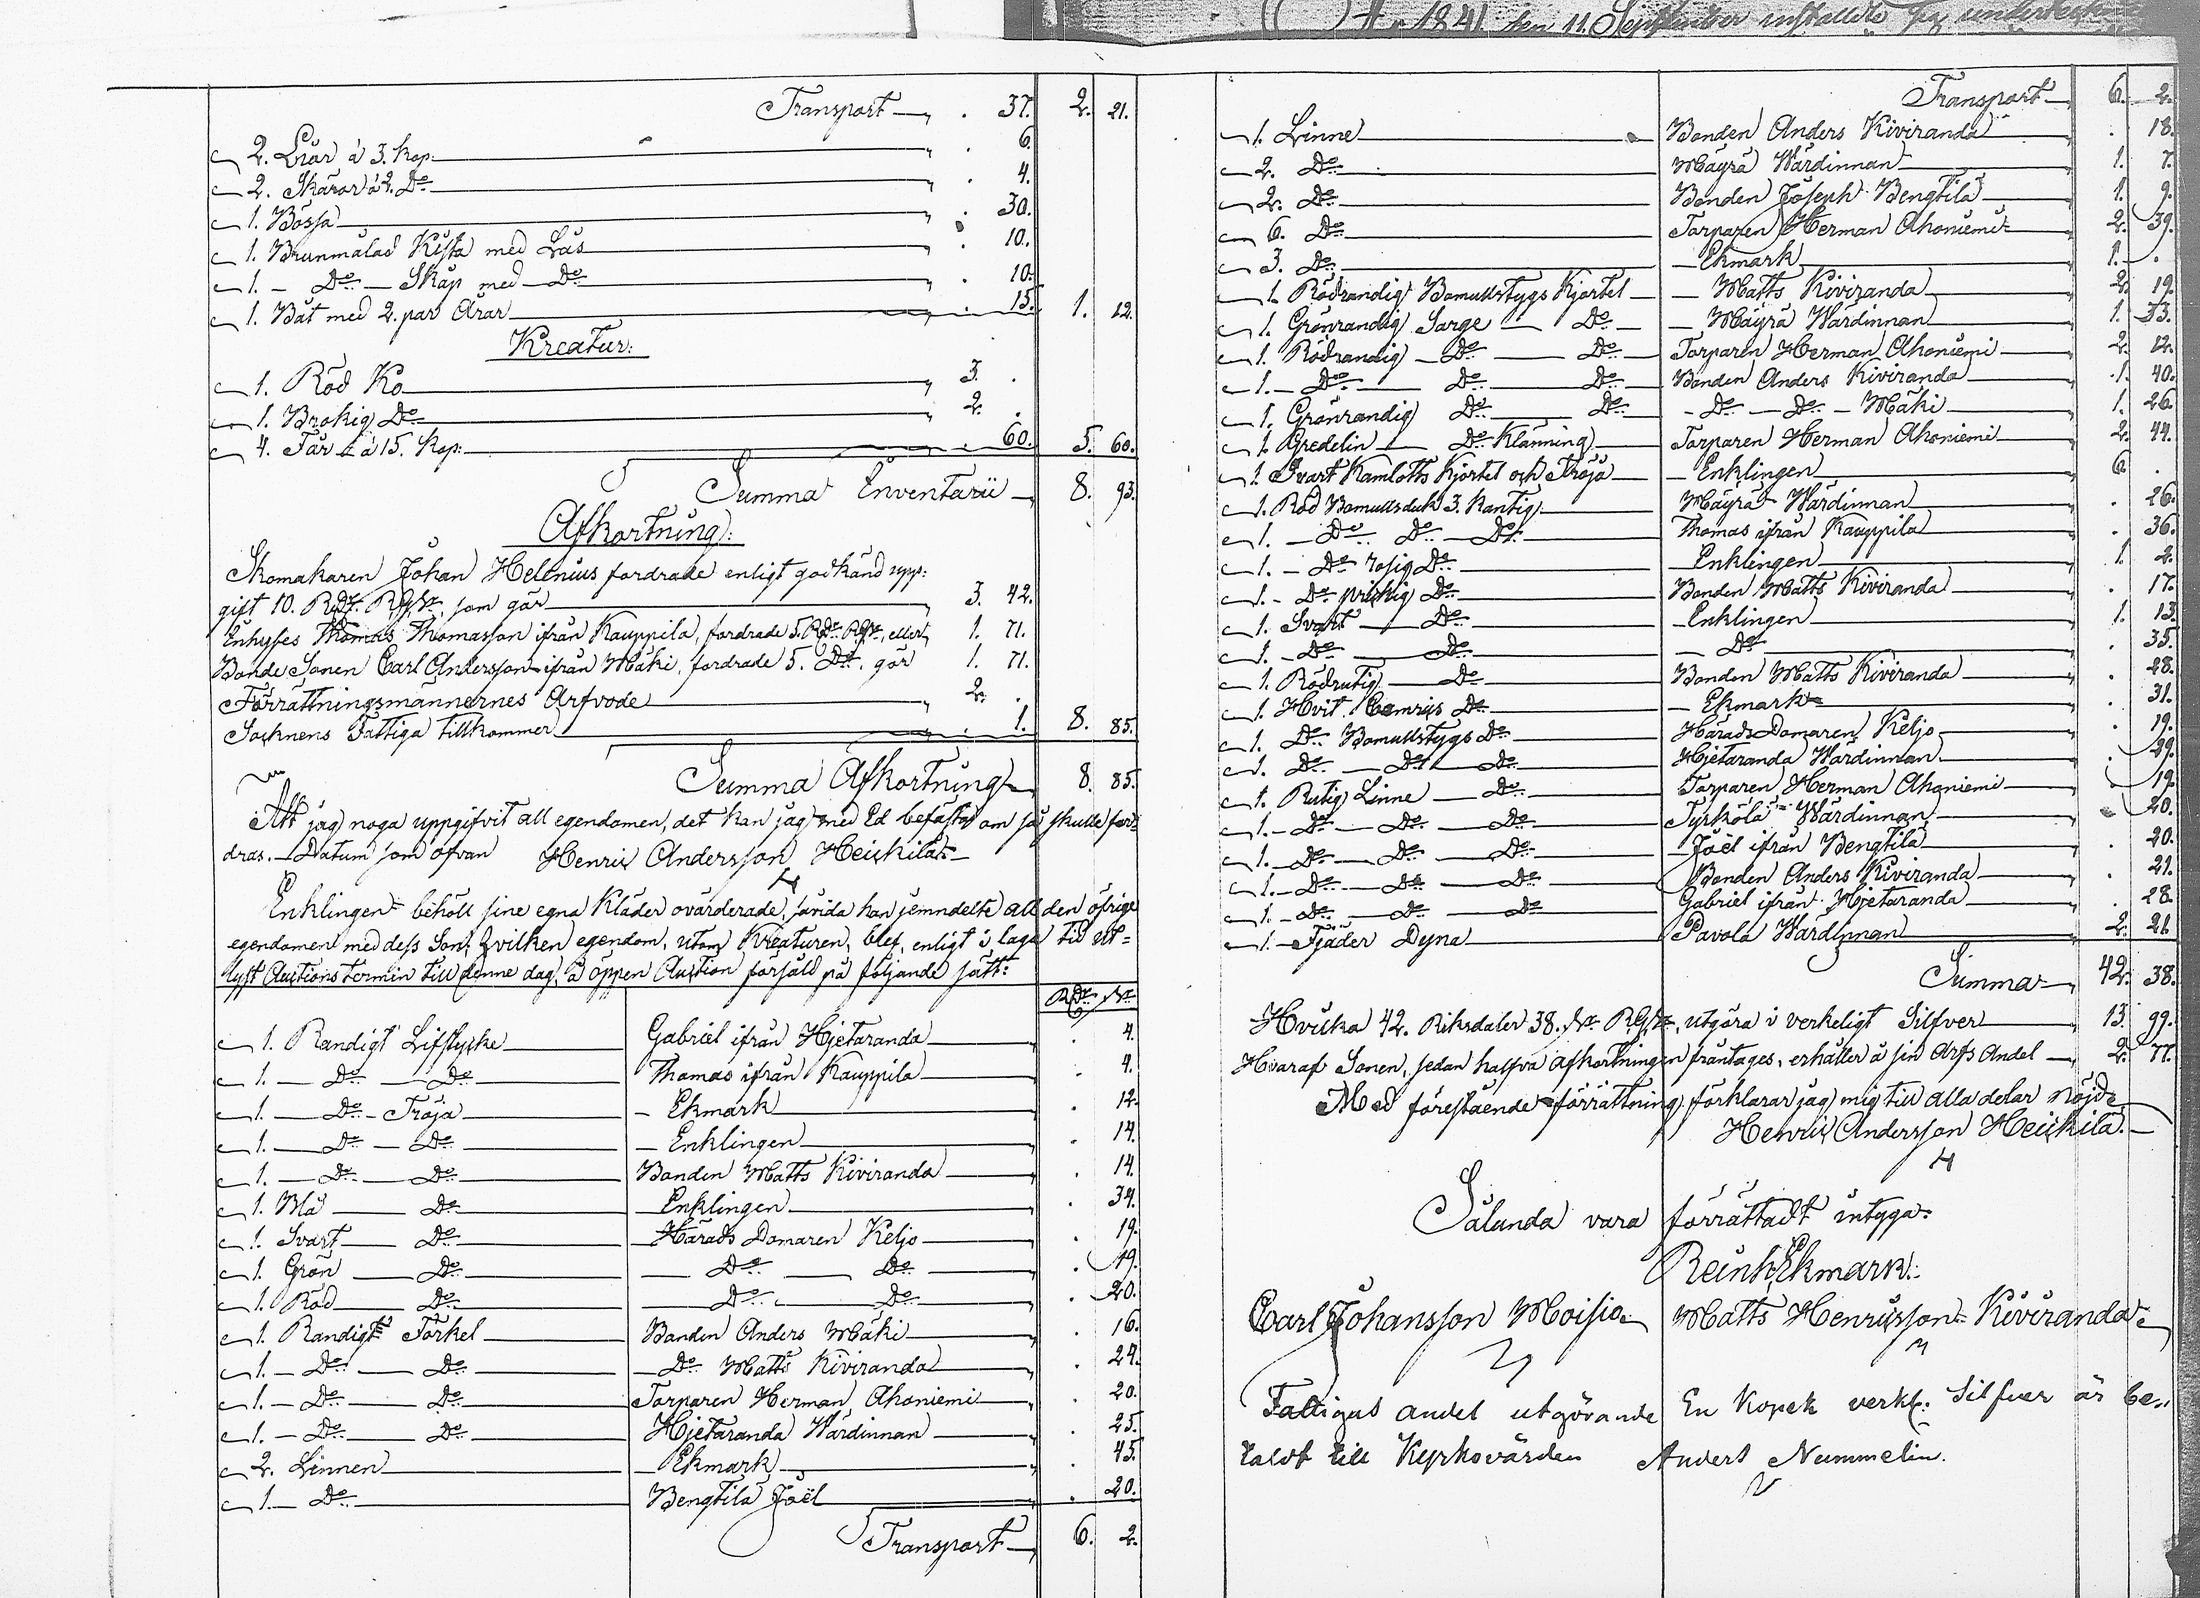 År 1841 den 11. September
Transport . 37. 2. 21.
2. Liar à 3. kop: . 6.
2. Skäror à 2. Do . 4.
1. Bössa . 30.
1. Brunmålad Kista med Lås . 10.
1. Do Skåp med Do . 10.
1. Båt med 2. par Åror . 15. 1. 12.
Kreatur:
1. Röd Ko 3. .
1. Brokig Do 2. .
4. Får à 15. Kop: . 60. 5. 60.
Summa Inventarii 8. 93.
Afkortning:
Skomakaren Johan Helenius fordrade enligt godkänd upp:
gift 10. Rdr. RGs, som gör 3. 42.
Enhyses Thomas Thomasson ifrån Kauppila, fordrade 5. Rdr RGs, eller 1. 71.
Bonde Sonen Carl Andersson ifrån Mäki, fordrade 5. Do. gör 1. 71.
Förrättningsmännernes Arfvode 2. .
Socknens Fattiga tillkommer . 1. 8. 85.
Summa Afkortning 8. 85.
Att jag noga uppgifvit all egendomen, det kan jag med Ed befästa om så skulle for:
dras. Datum som ofvan Henric Andersson Heickilä
Enklingen behöll sine egna Kläder ovärderade, såvida han jemndelte all den öfrige
egendomen med dess Son; hvilken egendom, utom Kreaturen, blef, enligt i laga tid ut=
lyst Auctions termin till denne dag, å öppen Auction försåld på följande sätt:
Rdr
1. Randigt Lifstycke Gabriel ifrån Hjetaranda . 4.
1. Do Do Thomas ifrån Kauppila . 4.
1. Do Tröja Ekmark . 12.
1. Do Do Enklingen . 14.
1. Do Do Bonden Matts Kiviranda . 14.
1. Blå Do Enklingen . 34.
1. Svart Do Härads Domaren Keljo . 19.
1. Grön Do Do Do . 19.
1. Röd Do Do Do . 20.
1. Randigt Förkel Bonden Anders Mäki . 16.
1. Do Do Do Matts Kiviranda . 24.
1. Do Do Torparen Herman Ahoniemi . 20.
1. Do Do Hjetaranda Wärdinnan . 25.
2. Linnen Ekmark . 45.
1. Do Bengtilä Joël . 20.
Transport 6. 2.
Transport 6. 2.
1. Linne Bonden Anders Kiviranda . 18.
2. Do Mäyrä Wärdinnan 1. 7.
2. Do Bonden Joseph Bengtilä 1. 9.
6. Do Torparen Herman Ahoniemi 2. 39.
3. Do Ekmark 1. .
1. Rödrandig Bomullstygs Kjortel Matts Kiviranda 2. 19.
1. Grönrandig Sarge Do Mäyrä Wärdinnan 1. 33.
1. Rödrandig Do Do Torparen Herman Ahoniemi 2. 12.
1. Do Do Do Bonden Anders Kiviranda 1. 40.
1. Grönrandig Do Do Do Do Mäki 1. 26.
1. Gredelin Do Klänning Torparen Herman Ahoniemi 2. 44.
1. Svart Kamlotts Kjortel och Tröja Enklingen 6. .
1. Röd Bomullsduk 3. kantig Mäyrä Wärdinnan . 26.
1. Do Do Do Thomas ifrån Kauppila . 36.
1. Do rosig Do Enklingen 1. 2.
1. Do prickig Do Bonden Matts Kiviranda . 17.
1. Svart Do Enklingen 1. 13.
1. Do Do Do . 35.
1. Rödrutig Do Bonden Matts Kiviranda . 28.
1. Hvit Do Ekmark . 31.
1. Do Bomullstygs Do Härads Domaren Keljo . 19.
1. Do Do Do Hjetaranda Wärdinnan . 29.
1. Rutig Linne Do Torparen Herman Ahoniemi . 19.
1. Do Do Do Wärdinnan . 20.
1. Do Do Do Joël ifrån Bengtilä . 20.
1. Do Do Do Bonden Anders Kiviranda . 21.
1. Do Do Do Gabriel ifrån Hjetaranda . 28.
1. Fjäder Dyna Pavola Wärdinnan 2. 21.
Summa 42. 38.
Hvilka 42. Riksdaler 38. RGs, utgöra i verkeligt Silfver 13. 99.
Hvaraf Sonen, sedan halfva afkortningen fråntages, erhåller å sin Arfs Andel 2. 77.
Med förestående förrättning förklarar jag mig till alla delar nöjd
Henric Andersson Heickilä.
Sålunda vara förrättadt intyga:
Reinh. Ekmark.
Carl Johansson Moisio Matts Henricsson Kiviranda
Fattigas andel utgörande En Kopek verkl: Silfver är be=
taldt till Kyrkovärden Anders Nummelin.